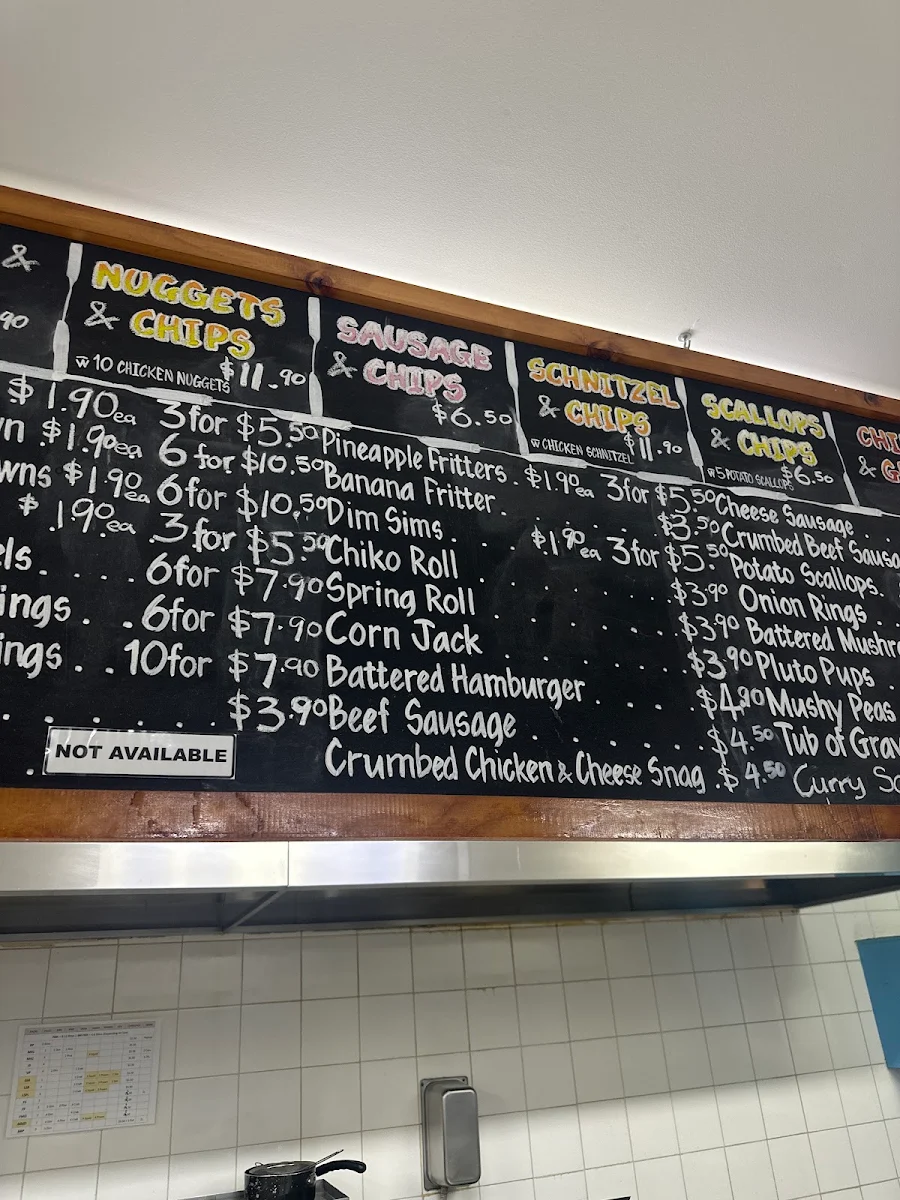 &
90
NUGGETS
& CHIPS
w 10 CHICKEN NUGGETS $11.90
SAUSAGE
& CHIPS
$6.50
SCHNITZEL
& CHIPS
w CHICKEN SCHNITZEL $11.90
SCALLOPS
& CHIPS
w 5 POTATO SCALLOPS $6.50
CHI
& G
$1.90ea 3 for $5.50
n $1.90ea 6 for $10.50
wns $1.90ea 6 for $10.50
$1.90ea 3 for $5.50
els..... 6 for $7.90
ings.. 6 for $7.90
ings.. 10 for $7.90
..... $3.90
NOT AVAILABLE
Pineapple Fritters. $1.90ea 3 for $5.50
Banana Fritter..... $3.50
Dim Sims... $1.90ea 3 for $5.50
Chiko Roll..... $3.90
Spring Roll..... $3.90
Corn Jack..... $3.90
Battered Hamburger.... $4.90
Beef Sausage...... $4.50
Crumbed Chicken & Cheese Snag. $4.50
Cheese Sausage
Crumbed Beef Sausa
Potato Scallops.
Onion Rings.
Battered Mushr
Pluto Pups.
Mushy Peas
Tub of Grav
Curry Sa